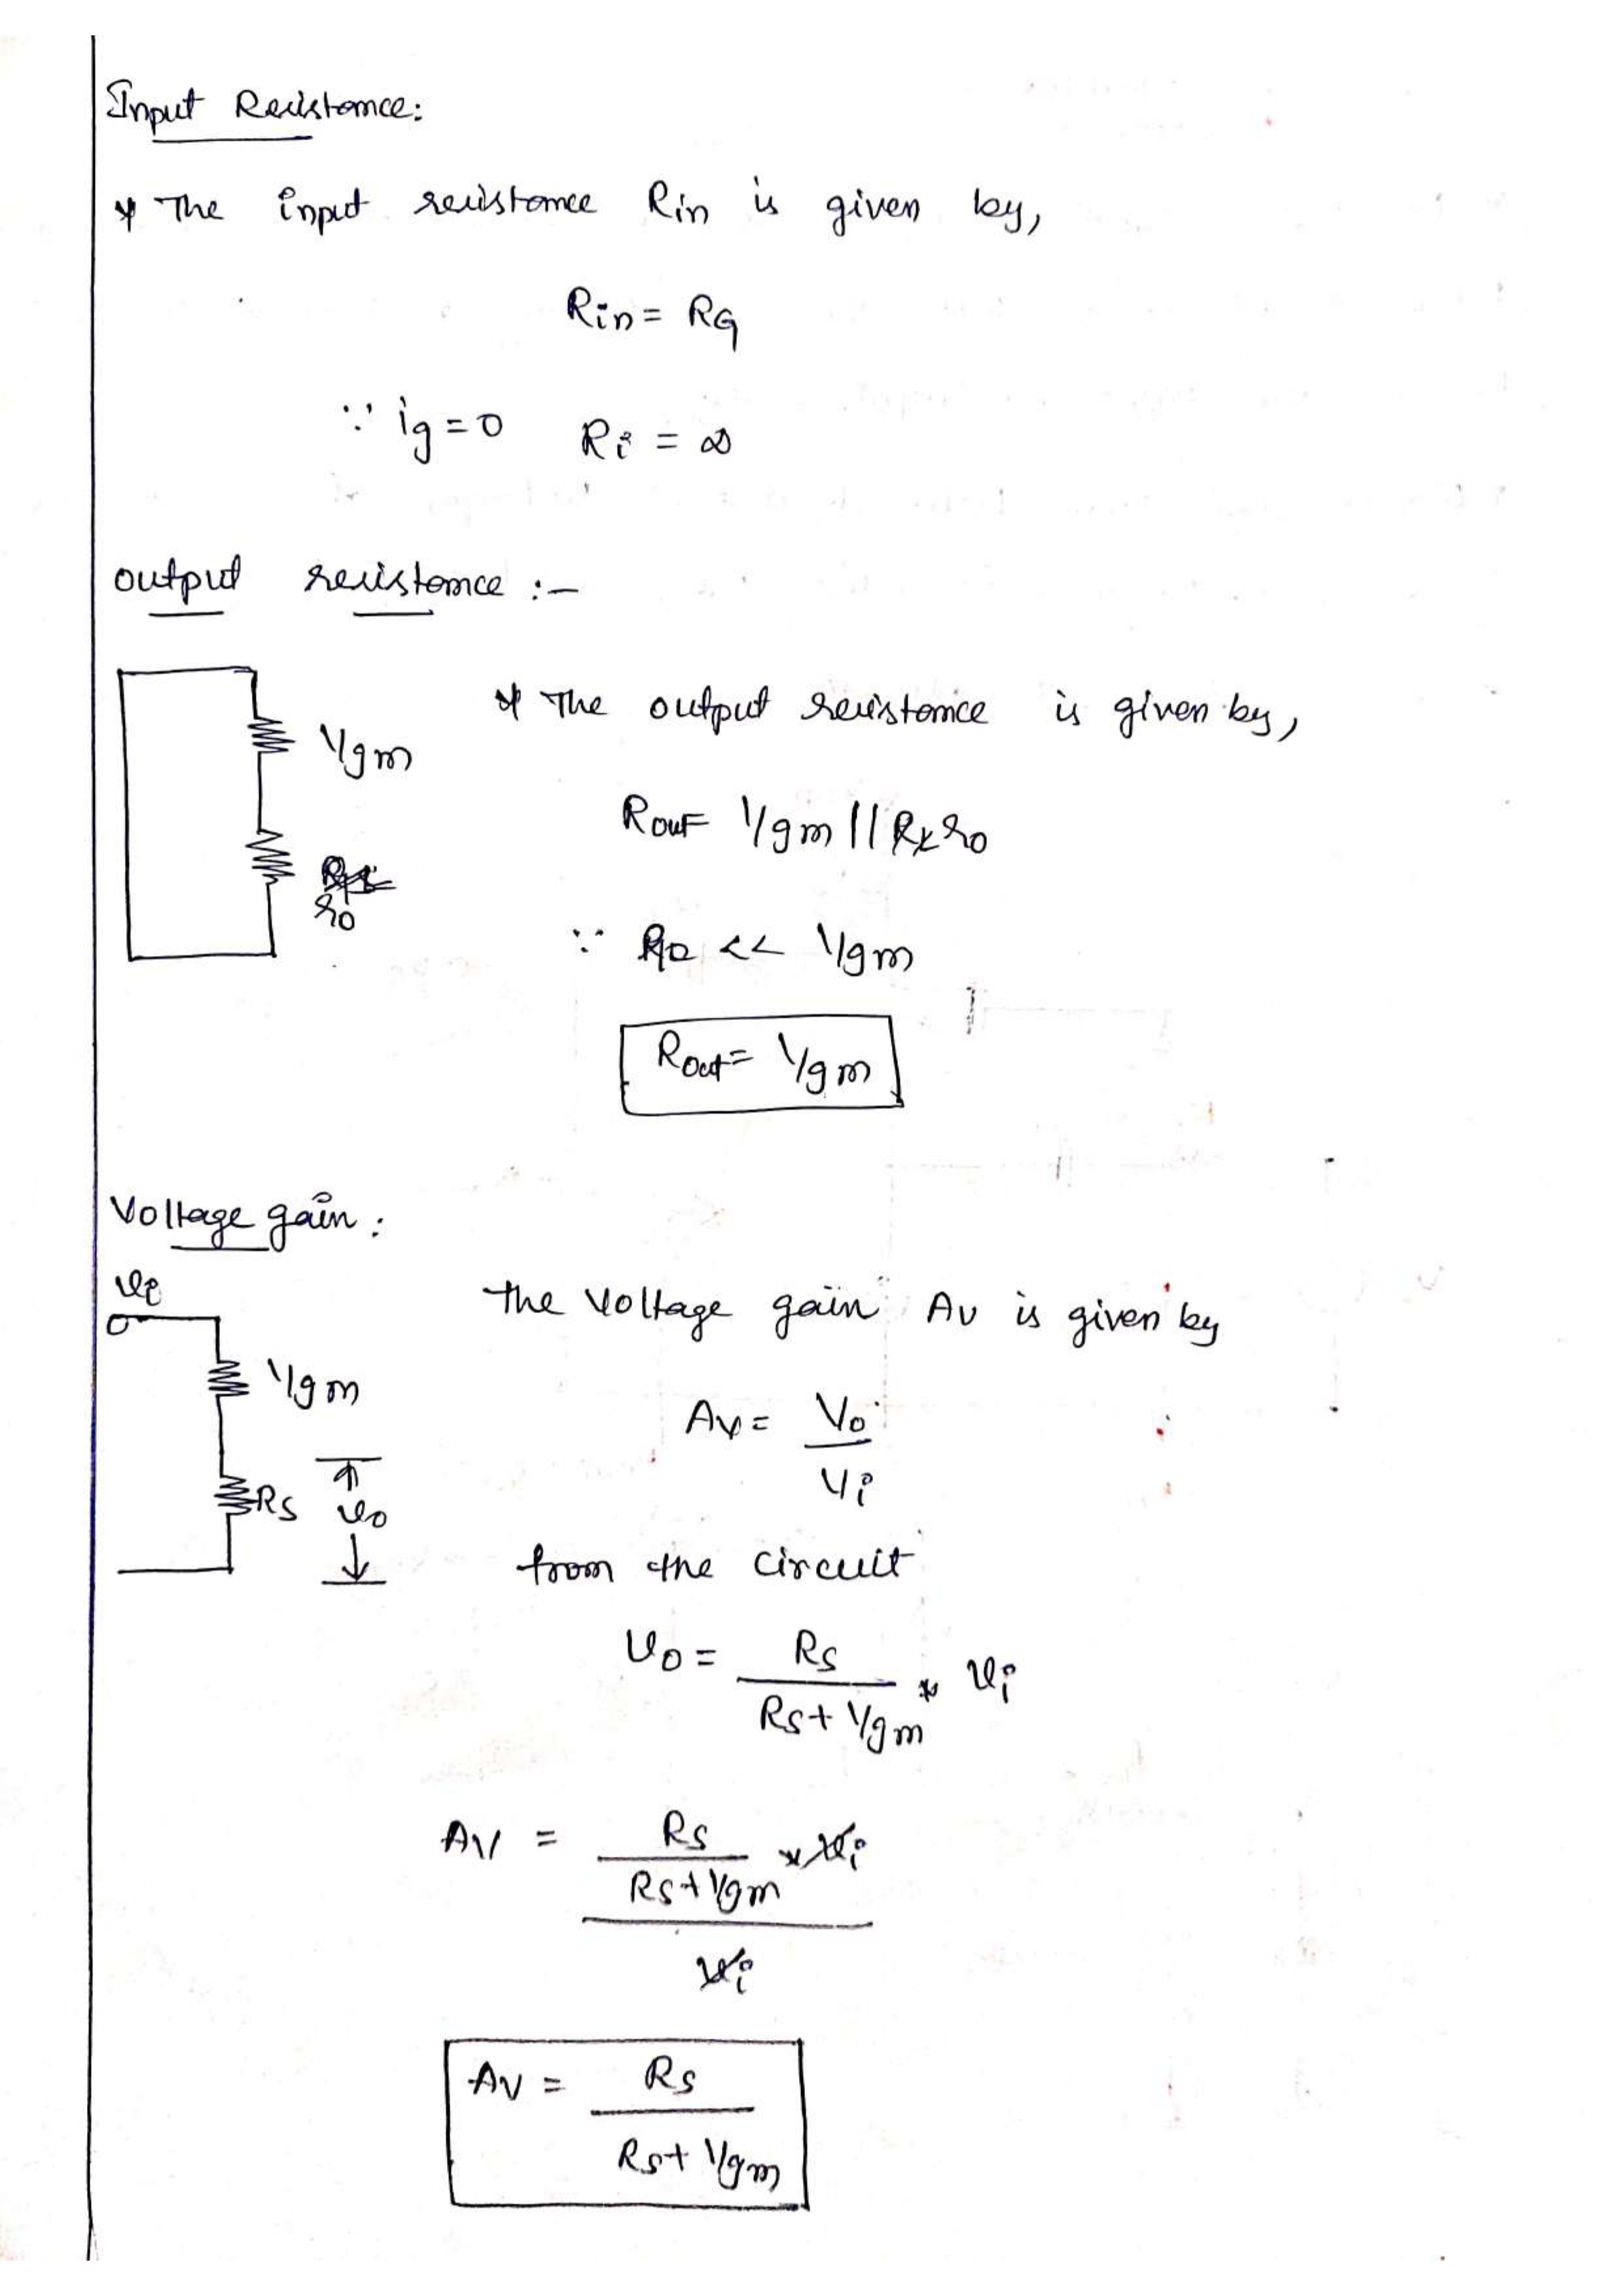 Input Resistance:
* The input resistance Rin is given by,
Rin = RG
∵ ig = 0 Ri = ∞
output resistance :-
1/gm
r0
* The output resistance is given by,
Rout = 1/gm || r0
∵ << 1/gm
Rout = 1/gm
Voltage gain :
vi
1/gm
RS
vo
the voltage gain Av is given by
Av = Vo
Vi
from the circuit
vo = RS
RS + 1/gm * vi
AV = RS
RS + 1/gm * vi
vi
AV = RS
RS + 1/gm